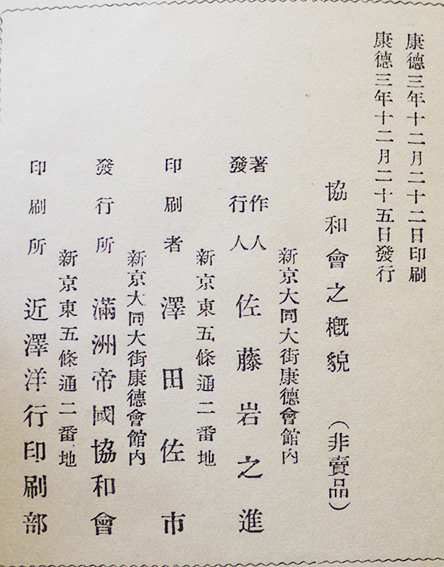 康德三年十二月二十二日印刷
康德三年十二月二十五日發行
協和會之槪貌　（非賣品）
新京大同大街康德會館內
著作人
發行人　佐藤岩之進
新京東五條通二番地
印刷者　澤田佐市
新京大同大街康德會館內
發行所　滿洲帝國協和會
新京東五條通二番地
印刷所　近澤洋行印刷部